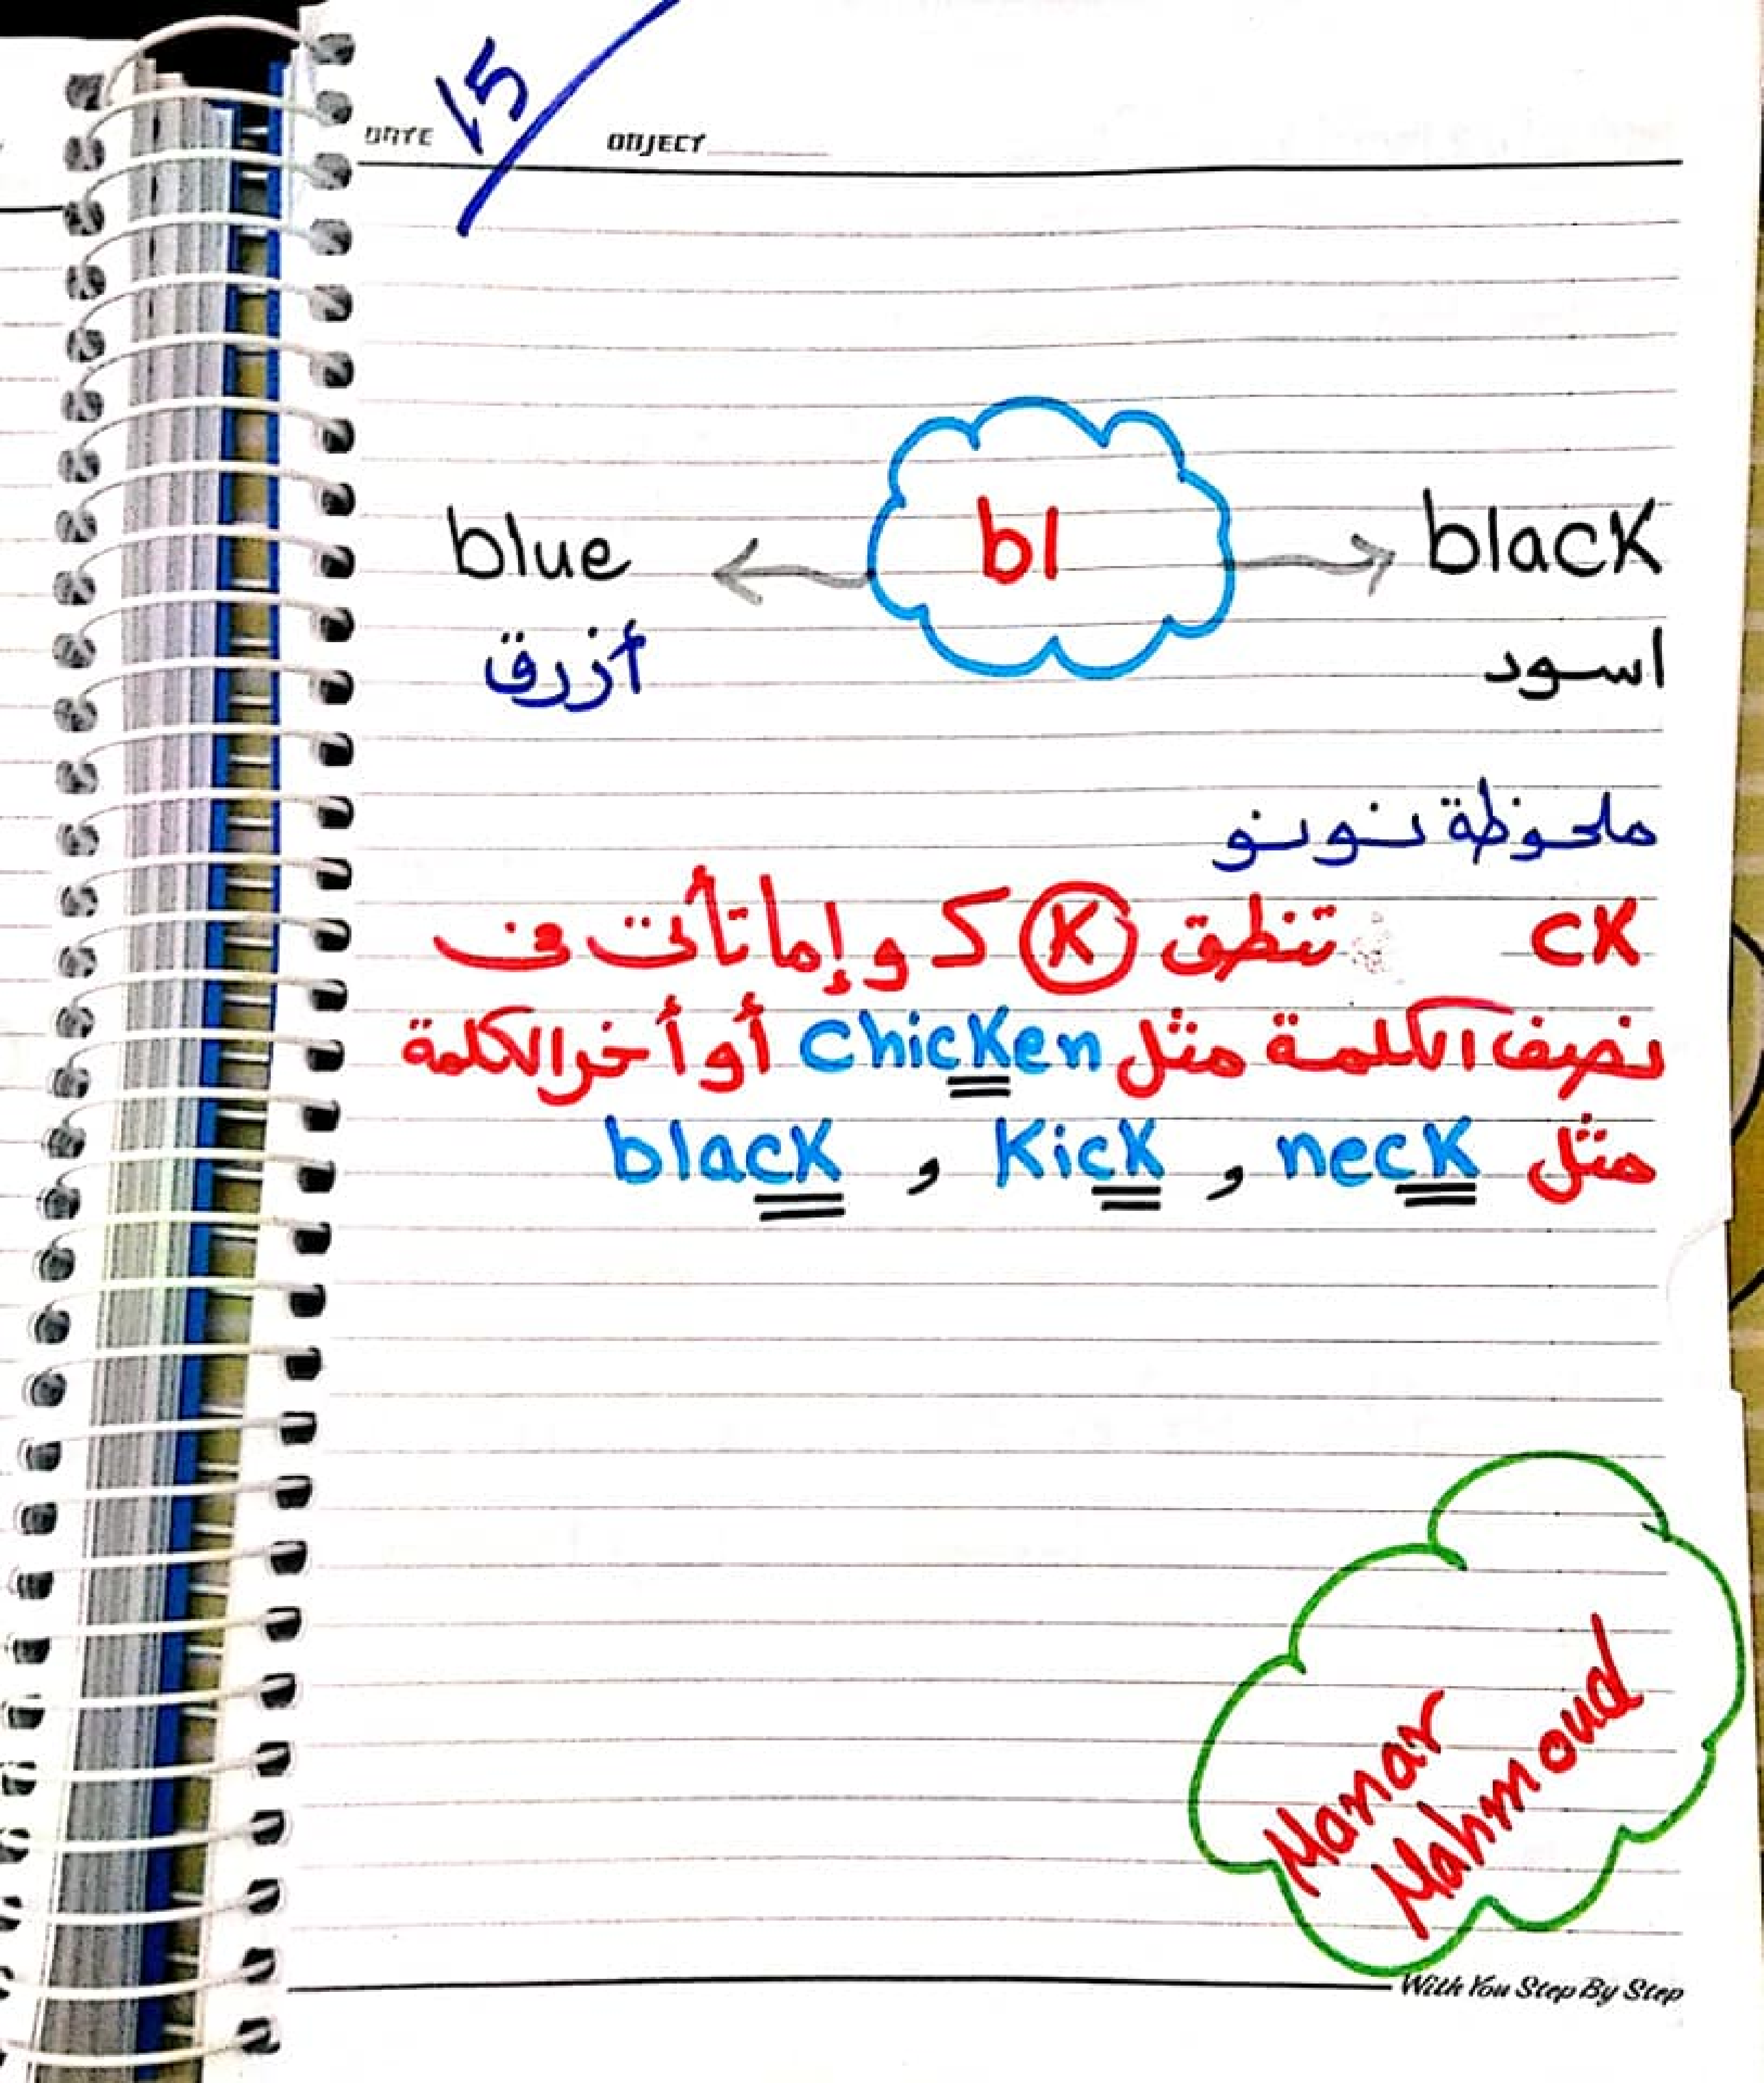 DATE 15 OBJECT
blue bl black
أزرق اسود
ملحوظة نونو
ck تنطق K ك و إما تأتى فى
نصف الكلمة مثل chicken أو أخر الكلمة
مثل neck , kick , black
Manar
Mahmoud
With You Step By Step